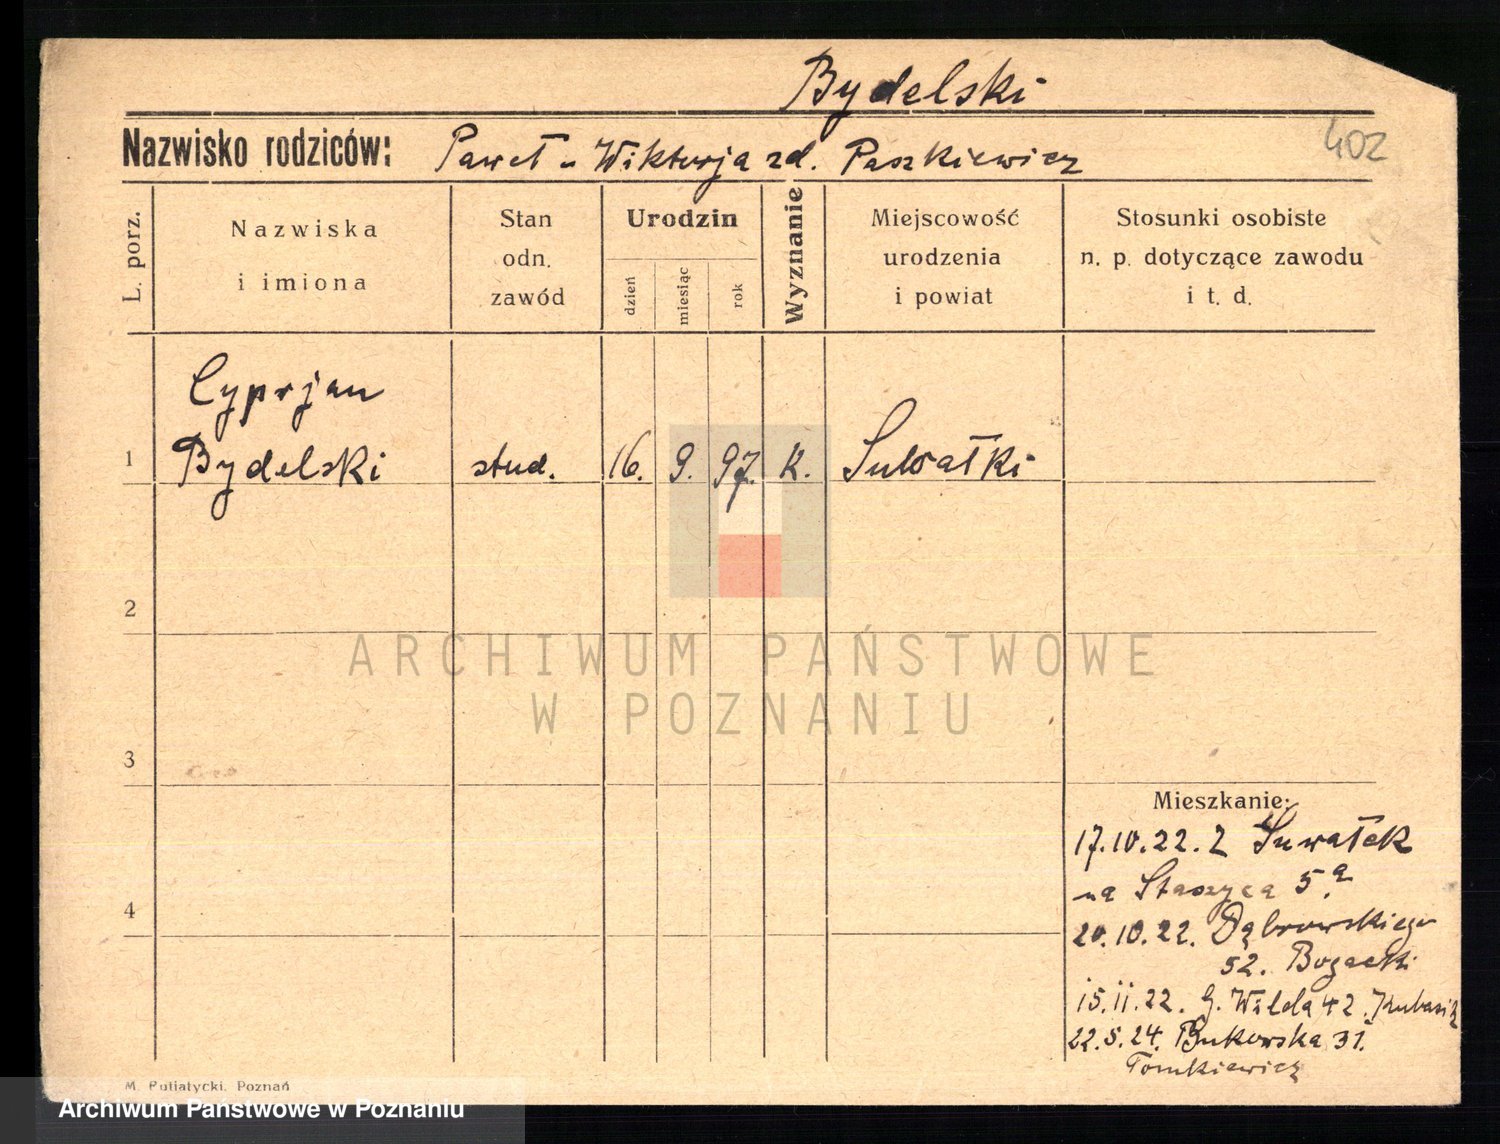 Bydelski
402
Nazwisko rodziców: Paweł - Wiktorja zd. Paszkiewicz
L. porz.
Nazwiska
i imiona
Stan
odn.
zawód
Urodzin
dzień
miesiąc
rok
Wyznanie
Miejscowość
urodzenia
i powiat
Stosunki osobiste
n. p. dotyczące zawodu
i t. d.
Cyprjan
1 Bydelski stud. 16. 9. 97. k. Suwałki
2
ARCHIWUM PAŃSTWOWE
W POZNANIU
3
Mieszkanie:
17.10.22. z Suwałek
na Staszyca 5a.
4
20.10.22. Dąbrowskiego
52. Bogacki
15.11.22. G. Wilda 42. Kubasik
22.5.24. Bukowska 31.
Tomkiewicz
M. Putiatycki, Poznań
Archiwum Państwowe w Poznaniu